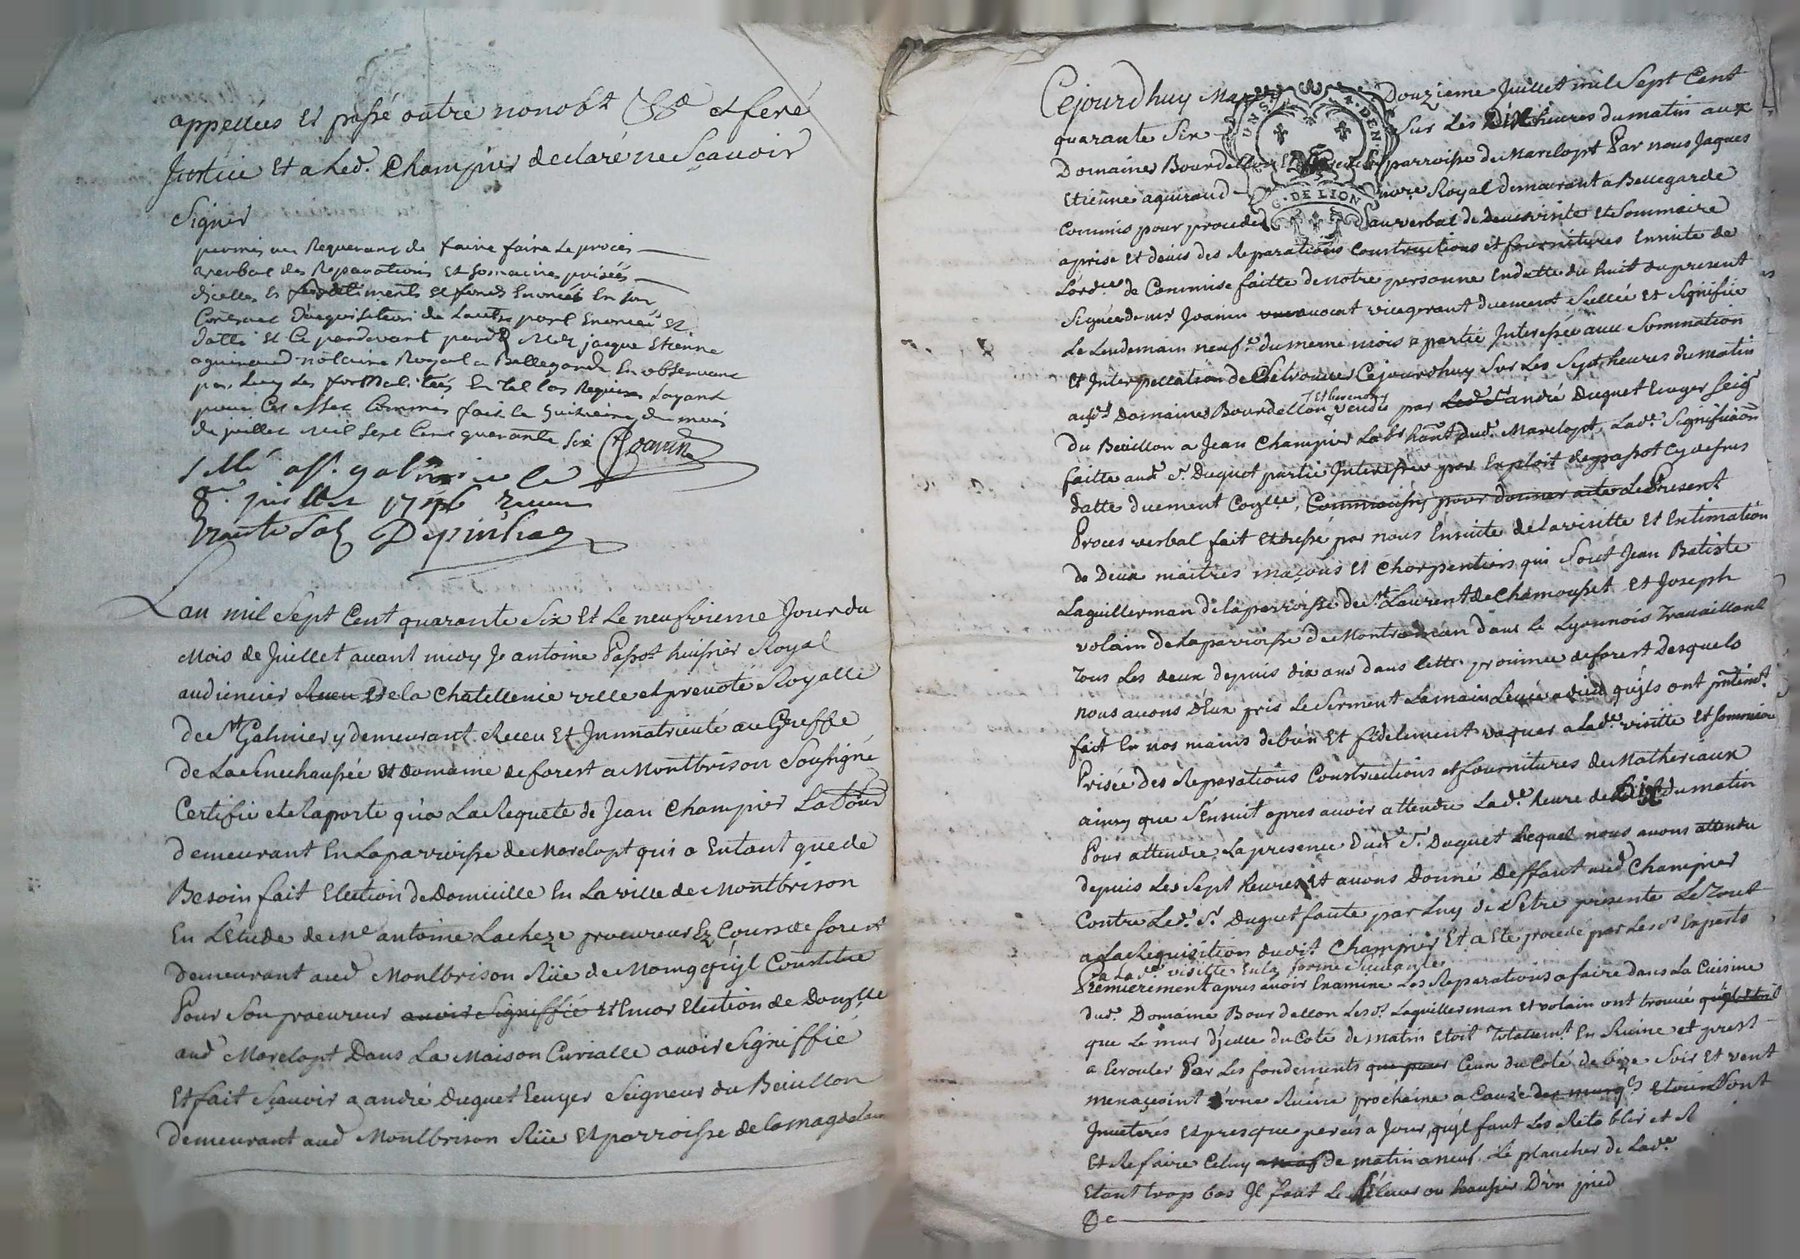 appellées et passé outre nonobt &a et feré
Justice et a led. Champier declaré ne Sçavoir
Signer
permis au Requerant de faire faire Le procès
verbal des Reparations et Sommaire prisées
dicelles es batiments et fonds Enoncés En son
Contract D'acquisition de Lautre part Enoncé et
datté et Ce pardevant Me jacque Etienne
aguiraud notaire Royal a Bellegarde En observant
par Luy Les formalités En tel Cas Requises Layant
pour Cet effet Commis fait le huitieme du mois
de juillet Mil Sept Cent quarante Six Joannin
Sellé a St. galmier le
8e. juillet 1746 Receu
trente Sols Depinhac
Lan mil Sept Cent quarante Six et Le neufvieme Jour du
Mois de Juillet avant midy Je antoine Passot huissier Royal
audiencier Receu et de la Chatellenie ville et prevoté Royalle
de St Galmier y demeurant Receu et Jmmatriculé au Greffe
de La Senechaussée et domaine de forest a Montbrison Soussigné
Certifie et Raporte qu'a La Requete de Jean Champier Labour
demeurant En La parroisse de Marclopt qui a Entant que de
Besoin fait Election de Domicille En La ville de Montbrison
En L'Etude de Me antoine Lacheze procureur Ez Cours de forest
demeurant aud Montbrison Rüe de quïl Constitue
Pour Son procureur avoir Signiffié et Encor Election de Domille
aud Marclopt Dans La Maison Curialle avoir Signiffié
Et fait Sçavoir a andré Duguet Ecuyer Seigneur du Beüillon
demeurant aud Montbrison Rüe et parroisse de la magdelaine
Cejourdhuy Douzieme Juillet mil Sept Cent
quarante Six Sur Les Dix heures du matin aux
Domaines Bourdellon parroisse de Marclopt Par nous Jaques
Etienne aguiraud Royal demeurant a Bellegarde
Commis pour proceder au verbal de visitte et Sommaire
aprise et devis des Reparations Constructions et fournitures Ensuite de
Lord.ce de Commise faitte de notre personne En datte du huit du present
Signée de mr Joanin avocat vicegerant duement Sellée et Signifiée
Le Lendemain neuf.e du meme mois a partie Interessée avec Sommation
et Interpellation de Se trouver Cejourdhuy Sur Les Sept heures du matin
aud. Domaines Bourdellon vendu par andré Duguet Ecuyer Seigr
du Beüillon a Jean Champier Labr hant dud. Marclopt, Lad.e Signification
faitte aud. Sr. Duguet partie Interessée par Exploit de passot Cy dessus
datte duement Conlle, Comparaissez pour donner acte Le Present
Proces verbal fait et dressé par nous Ensuite de la visitte et Estimation
de Deux maitres maçons et Charpentiers qui Sont Jean Batiste
Laguillerman de la parroisse de St Laurent de Chamousset et Joseph
volain de La parroisse de dans le Lyonnois travaillant
tous Les deux depuis dix ans dans Cette province de forest Desquels
nous avons d'Eux pris Le Serment La main Levée a dieu quïls ont pntemt.
fait En nos mains de bien et fidelement vaquer a Lad.e visitte et Sommaire
Prisée des Reparations Constructions et fournitures de Matheriaux
ainsy que S'ensuit apres avoir attendu Lad.e heure de Dix du matin
Pour attendre La presence Dud. Sr. Duguet Lequel nous avons attendu
depuis Les Sept heures et avons Donné Deffaut aud Champier
Contre Led. Sr. Duguet faute par Luy de Setre presenté Le tout
a La Requisition dudit Champier et a Eté procedé par Les d. Experts
a Lad.e visitte En La forme Suivante
Premierement apres avoir Examiné Les Reparations a faire dans La Cuisine
dud. Domaine Bourdellon Les d. Laguillerman et volain ont trouvé
que Le mur d'jcelle du Coté de matin Etoit totalemt. En Ruine et prest
a Ecrouler Par Les fondements Ceux du Coté de bize Soir et vent
menaçoint d'une Ruine prochaine a Cause
et presque percés a Jour, quïl faut Les Retablir et
Et Refaire Celuy de matin a neuf. Le plancher de Lad.e
Etant trop bas Jl faut Le Elever ou hausser D'un pied
&c
UN S. 4. DEN.
G. DE LION